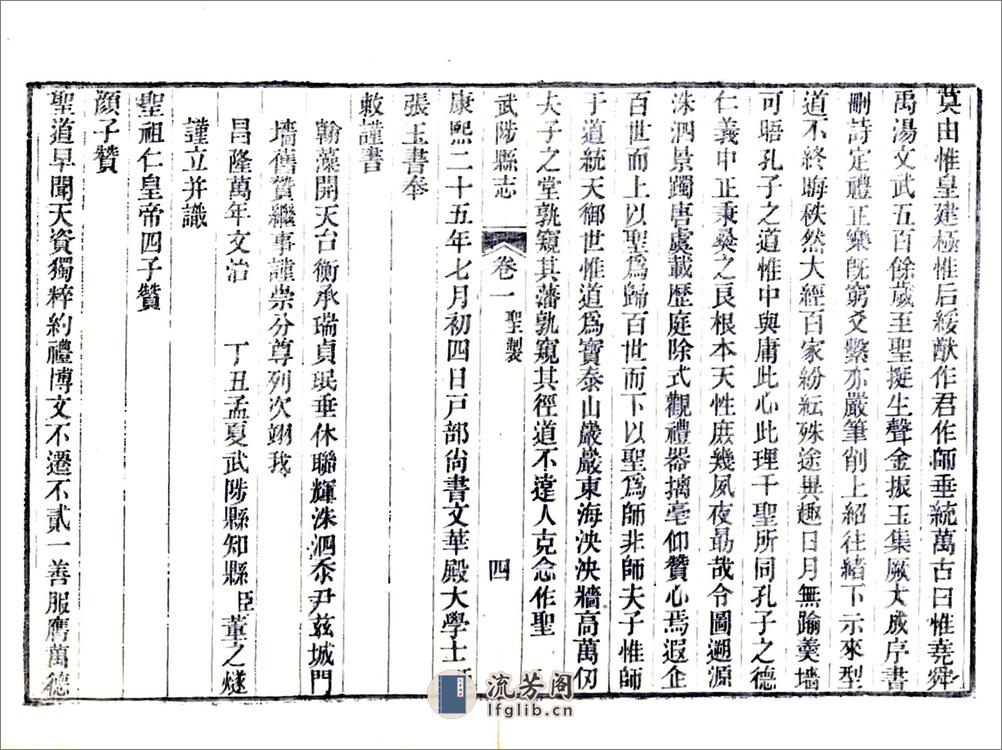 莫由惟皇建極惟后綏猷作君作師垂統萬古曰惟堯舜
禹湯文武五百餘歲至聖挺生聲金振玉集厥大成序書
刪詩定禮正樂既窮爻繫亦嚴筆削上紹往緒下示來型
道不終晦秩然大經百家紛紜殊途異趣日月無踰羹墻
可晤孔子之道惟中與庸此心此理千聖所同孔子之德
仁義中正秉彝之良根本天性庶幾夙夜勗哉令圖遡源
洙泗景躅唐虞載歷庭除式觀禮器摛毫仰贊心焉遐企
百世而上以聖爲歸百世而下以聖爲師非師夫子惟師
于道統天御世惟道爲寶泰山巖巖東海泱泱牆高萬仞
夫子之堂孰窺其藩孰窺其徑道不遠人克念作聖
武陟縣志
卷一
聖製
四
康熙二十五年七月初四日戸部尙書文華殿大學士
張玉書奉
敕謹書
翰藻開天台衡承瑞貞珉垂休聯輝洙泗忝尹兹城門
墻舊贊繼事謹崇分尊列次翊我
昌隆萬年文治 丁丑孟夏武陟縣知縣臣董之燧
謹立并識
聖祖仁皇帝四子贊
顏子贊
聖道早聞天資獨粹約禮博文不遷不貳一善服膺萬德
流芳阁
lfglib.cn